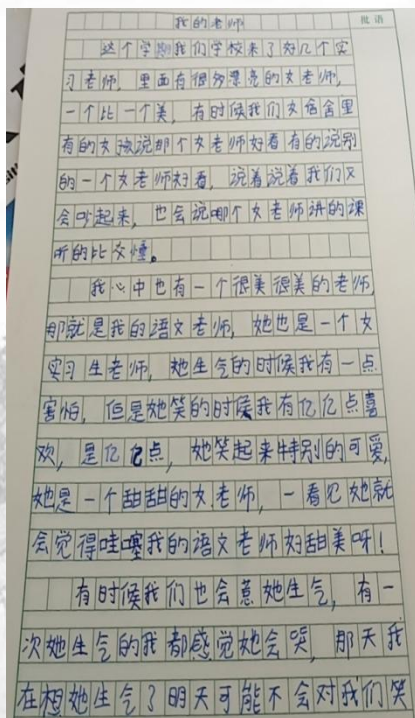 我的老师
批语
这个学期我们学校来了好几个实
习老师，里面有很多漂亮的女老师，
一个比一个美，有时候我们女舍舍里
有的女孩说那个女老师好看有的说别
的一个女老师好看，说着说着我们又
会吵起来，也会说哪个女老师讲的课
听的比较懂。
我心中也有一个很美很美的老师，
那就是我的语文老师，她也是一个女
实习生老师，她生气的时候我有一点
害怕，但是她笑的时候我有亿亿点喜
欢，是亿亿点，她笑起来特别的可爱，
她是一个甜甜的女老师，一看见她就
会觉得哇噻我的语文老师好甜美呀！
有时候我们也会惹她生气，有一
次她生气的我都感觉她会哭，那天我
在想她生气了明天可能不会对我们笑